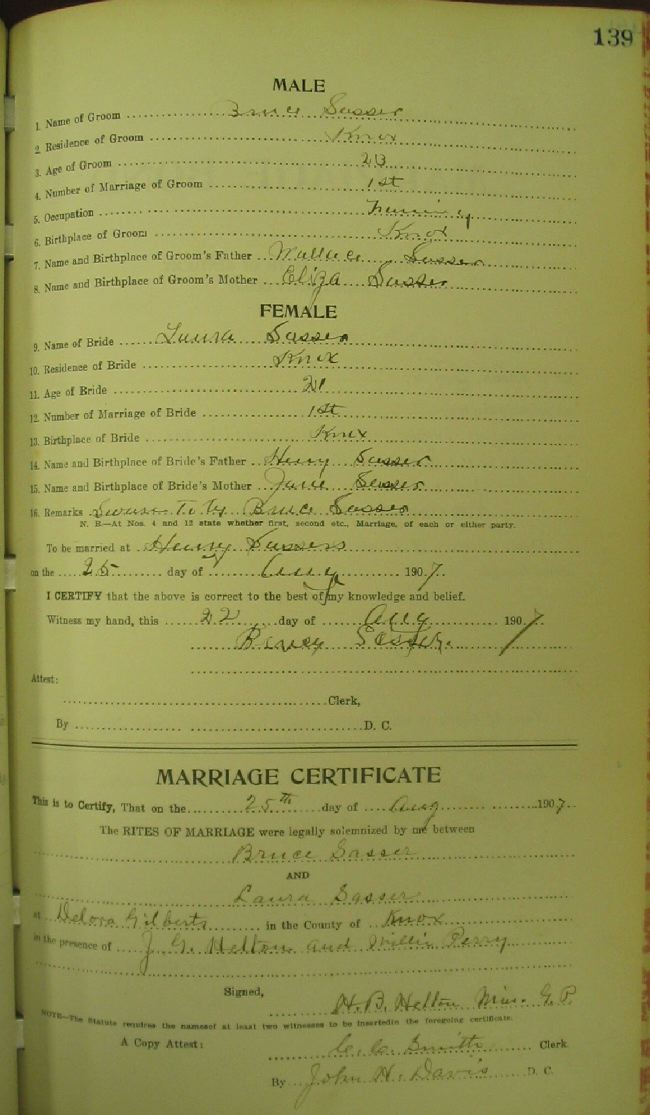 139
MALE
1. Name of Groom Bruce Sasser
2. Residence of Groom Knox
3. Age of Groom 23
4. Number of Marriage of Groom 1st
5. Occupation
6. Birthplace of Groom Knox
7. Name and Birthplace of Groom's Father Wallace Sasser
8. Name and Birthplace of Groom's Mother Eliza Sasser
FEMALE
9. Name of Bride Laura Sasser
10. Residence of Bride Knox
11. Age of Bride 21
12. Number of Marriage of Bride 1st
13. Birthplace of Bride Knox
14. Name and Birthplace of Bride's Father Henry Sasser
15. Name and Birthplace of Bride's Mother Jane Sasser
16. Remarks Sworn To by Bruce Sasser
N. B.—At Nos. 4 and 12 state whether first, second etc., Marriage, of each or either party.
To be married at Henry Sassers
on the 25 day of Aug 1907.
I CERTIFY that the above is correct to the best of my knowledge and belief.
Witness my hand, this 22 day of Aug 1907
Sasser.
Attest:
Clerk,
By D. C.
MARRIAGE CERTIFICATE
This is to Certify, That on the 25th day of Aug 1907.
The RITES OF MARRIAGE were legally solemnized by me between
Bruce Sasser
AND
Laura Sasser
at Delora Gilberts in the County of Knox
in the presence of J. G. Helton and Willie Perry
Signed,
H. B. Helton Min. G. P.
NOTE—The Statute requires the names of at least two witnesses to be inserted in the foregoing certificate.
A Copy Attest: C. C. Smith Clerk
By John H. Davis D. C.